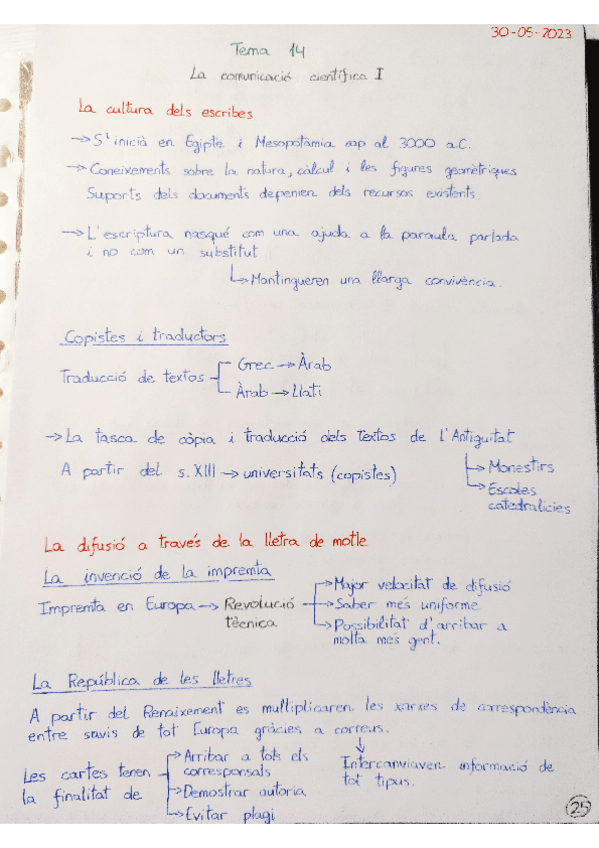 30-05-2023
Tema 14
La comunicació científica I
La cultura dels escribes
→ S'inicià en Egipte i Mesopotàmia cap al 3000 a.C.
→ Coneixements sobre la natura, càlcul i les figures geomètriques
Suports dels documents depenien dels recursos existents.
→ L'escriptura nasqué com una ajuda a la paraula parlada
i no com un substitut
↳ Mantingueren una llarga convivència.
Copistes i traductors
Traducció de textos
Grec → Àrab
Àrab → Llatí
→ La tasca de còpia i traducció dels Textos de l'Antiguitat
→ Monestirs
→ Escoles
catedralícies
A partir del s. XIII → universitats (copistes)
La difusió a través de la lletra de motle
La invenció de la impremta
Impremta en Europa → Revolució
tècnica
→ Major velocitat de difusió
→ Saber més uniforme
→ Possibilitat d'arribar a
molta més gent.
La República de les lletres
A partir del Renaixement es multiplicaren les xarxes de correspondència
entre savis de tot Europa gràcies a correus.
↓
Intercanviaven informació de
tot tipus.
Les cartes tenen
la finalitat de
→ Arribar a tots els
corresponsals
→ Demostrar autoria
→ Evitar plagi
25